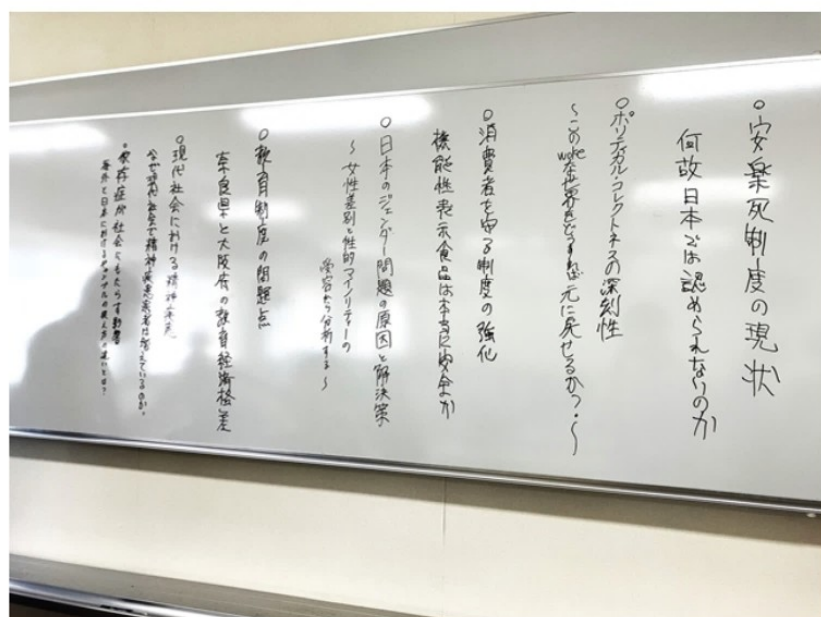 ○安楽死制度の現状
何故日本では認められないのか
○ポリティカル・コレクトネスの深刻性
〜このwokeな世界をどうすれば元に戻せるか?〜
○消費者を守る制度の強化
機能性表示食品は本当に安全か
○日本のジェンダー問題の原因と解決策
〜女性差別と性的マイノリティーの
受容から分析する〜
○教育制度の問題点
奈良県と大阪府の教育経済格差
○現代社会における精神疾患
なぜ現代社会で精神疾患患者は増えているのか。
○依存症が社会にもたらす影響
海外と日本におけるギャンブルの捉え方の違いとは?